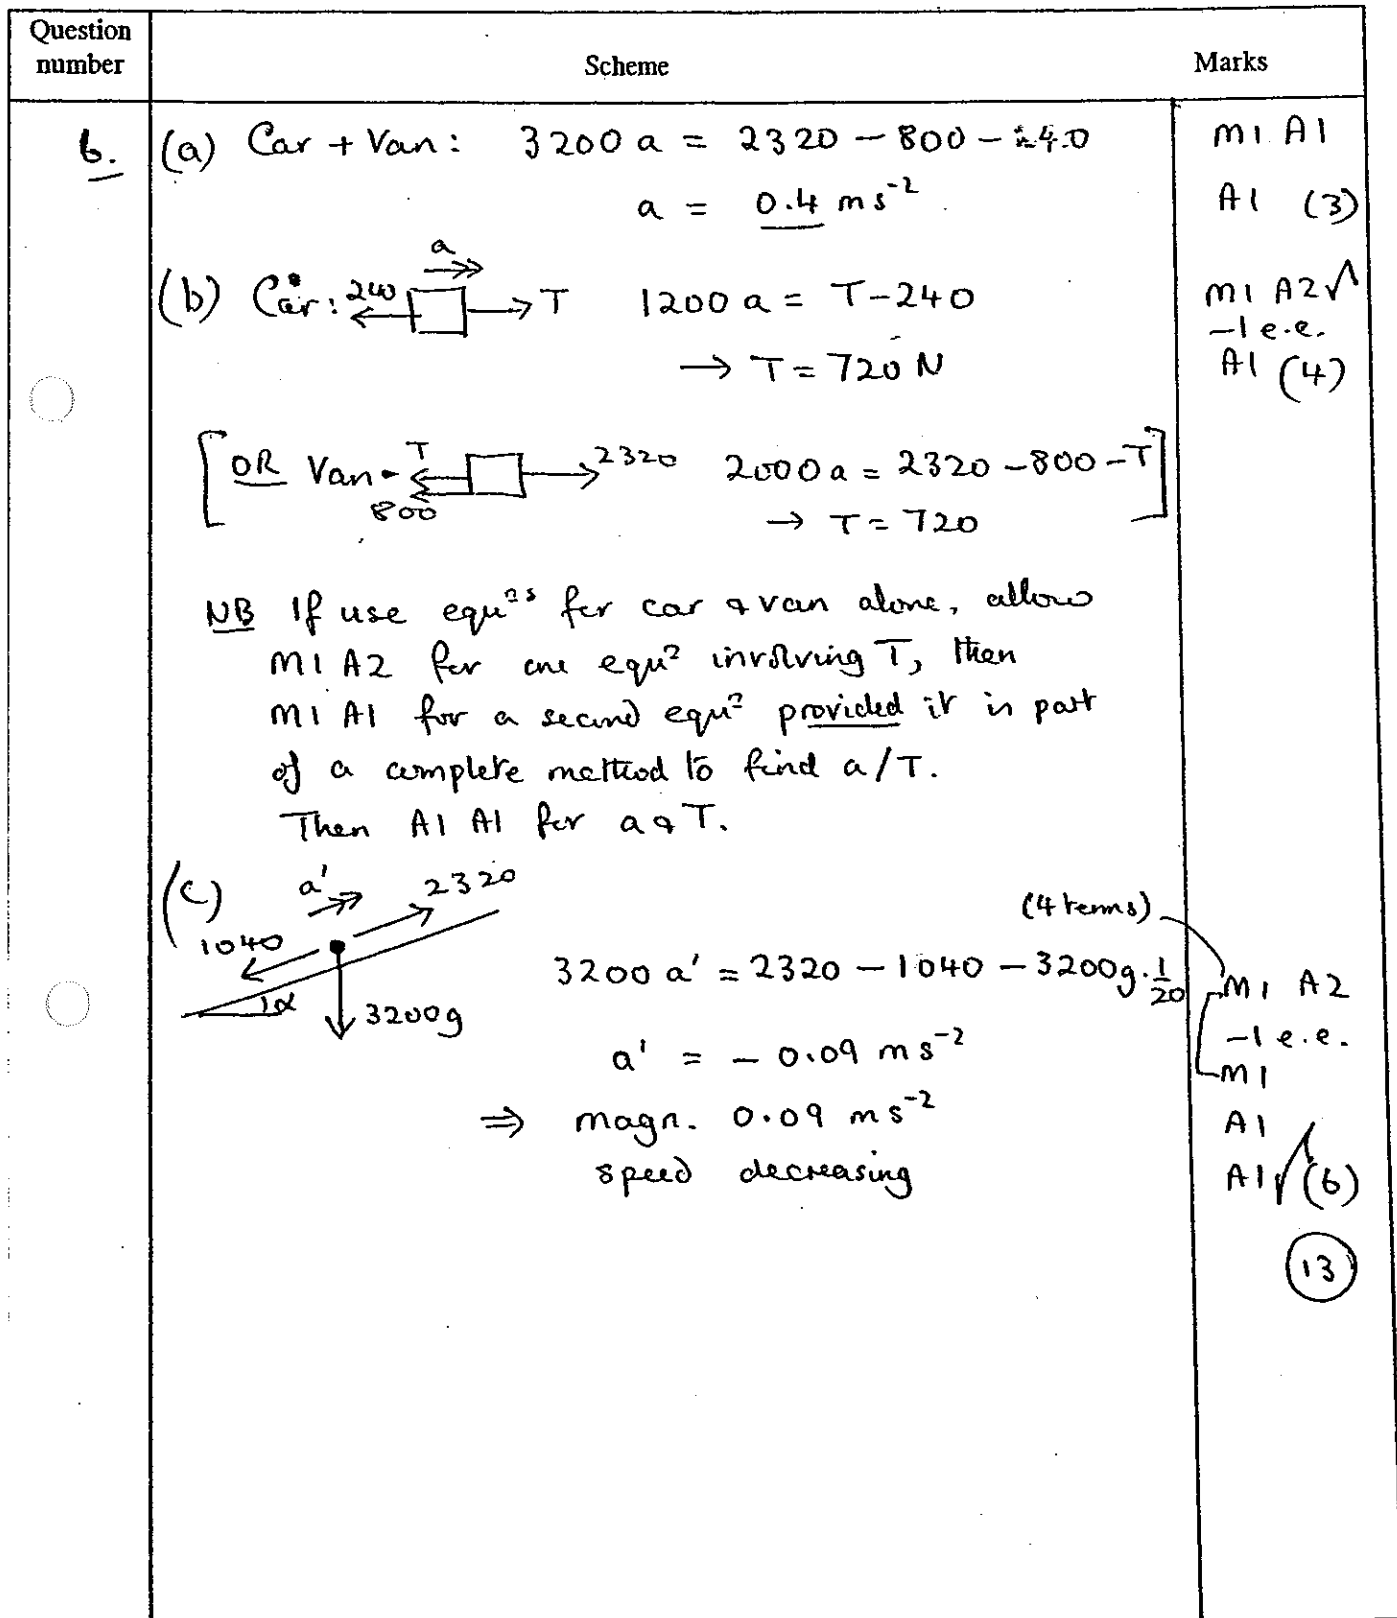 Question number Scheme Marks
6. (a) Car + Van: 3200 a = 2320 − 800 − 240 M1 A1
a = 0.4 ms⁻² A1 (3)
a
(b) Car: 240 T 1200 a = T − 240 M1 A2√
−1 e.e.
→ T = 720 N A1 (4)
[OR Van T 2320 2000a = 2320 − 800 − T]
800 → T = 720
NB If use equⁿˢ for car & van alone, allow
M1 A2 for one equⁿ involving T, then
M1 A1 for a second equⁿ provided it is part
of a complete method to find a/T.
Then A1 A1 for a & T.
(c) a' 2320 (4 terms)
1040 3200 a' = 2320 − 1040 − 3200g.1/20 M1 A2
α 3200g −1 e.e.
a' = − 0.09 ms⁻² M1
⇒ magn. 0.09 ms⁻² A1
speed decreasing A1√ (6)
13